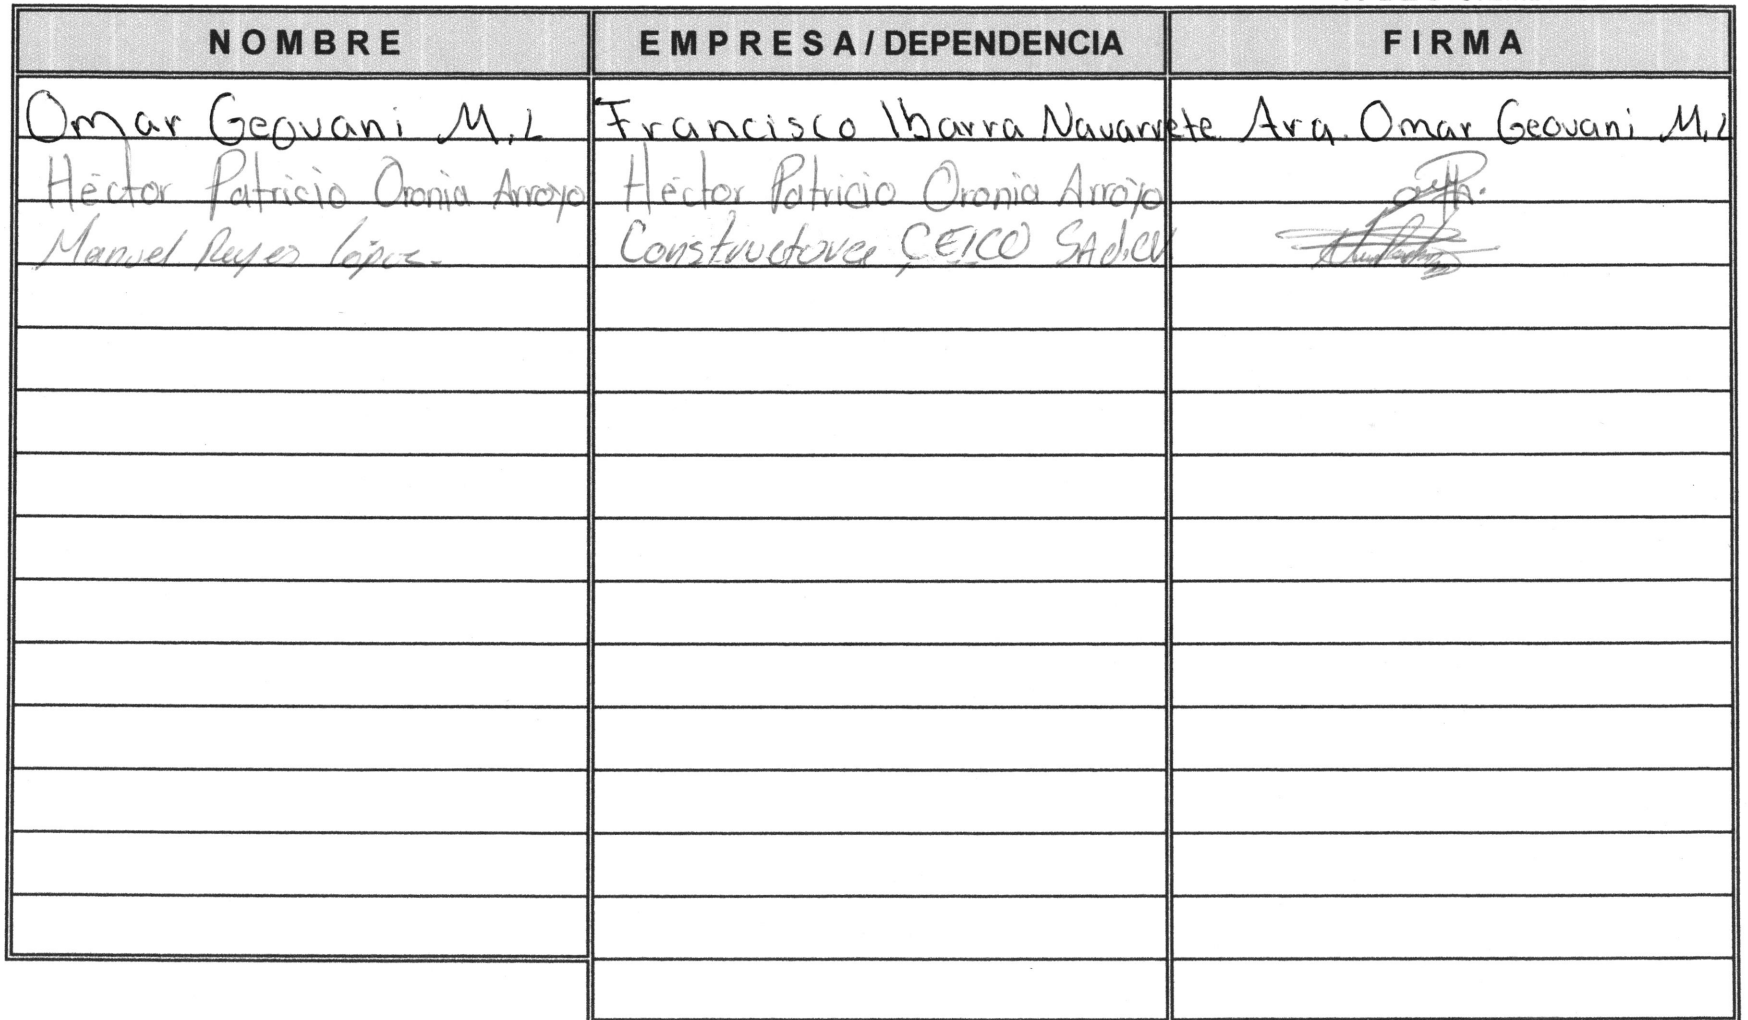 NOMBRE EMPRESA/DEPENDENCIA FIRMA
Omar Geovani M.L Francisco Ibarra Navarrete Arq. Omar Geovani M.L
Héctor Patricio Oronia Arroyo Héctor Patricio Oronia Arroyo
Manuel Reyes López. Constructora CEICO SAdeCV